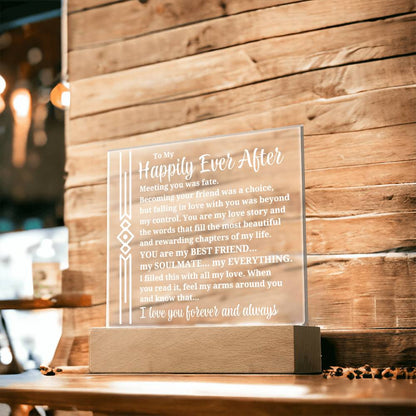 To My
Happily Ever After
Meeting you was fate.
Becoming your friend was a choice,
but falling in love with you was beyond
my control. You are my love story and
the words that fill the most beautiful
and rewarding chapters of my life.
YOU are my BEST FRIEND...
my SOULMATE... my EVERYTHING.
I filled this with all my love. When
you read it, feel my arms around you
and know that...
I love you forever and always